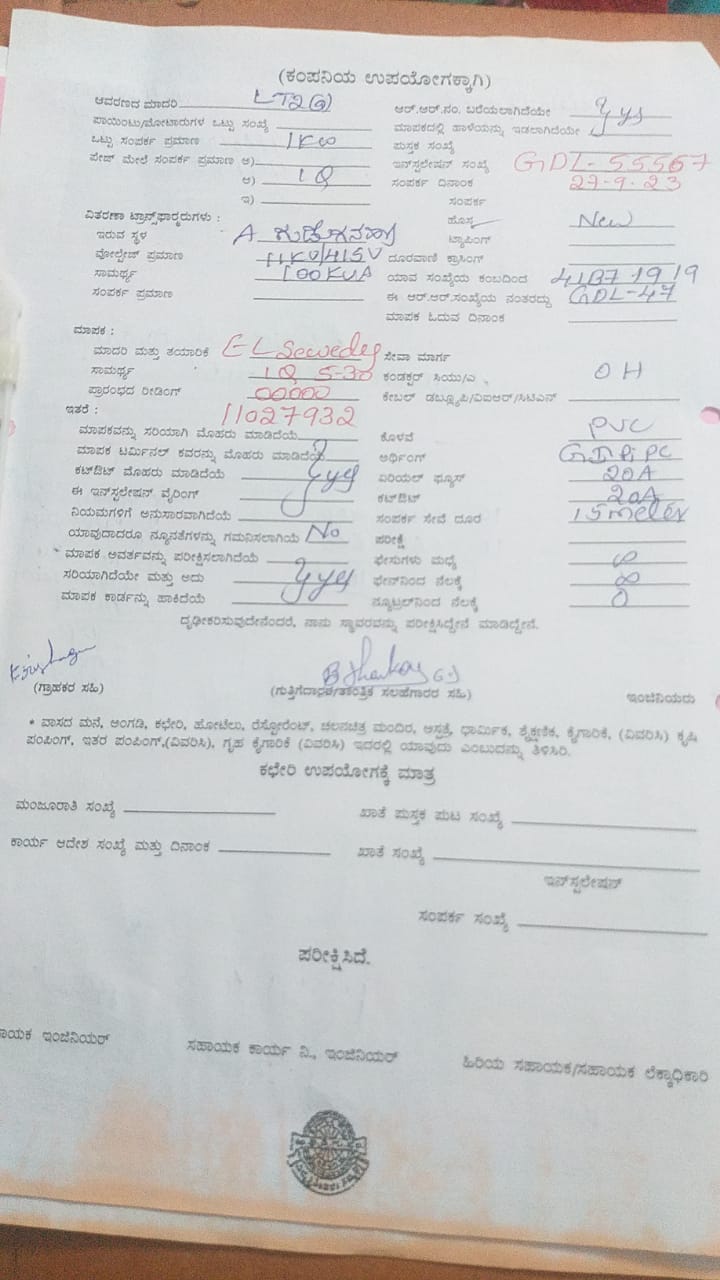 (ಕಂಪನಿಯ ಉಪಯೋಗಕ್ಕಾಗಿ)
ಆವರಣದ ಮಾದರಿ LT2(a) ಆರ್.ಆರ್.ನಂ. ಬರೆಯಲಾಗಿದೆಯೇ yes
ಪಾಯಿಂಟು/ಮೋಟಾರುಗಳ ಒಟ್ಟು ಸಂಖ್ಯೆ ಮಾಪಕದಲ್ಲಿ ಹಾಳೆಯನ್ನು ಇಡಲಾಗಿದೆಯೇ
ಒಟ್ಟು ಸಂಪರ್ಕ ಪ್ರಮಾಣ 1KW ಪುಸ್ತಕ ಸಂಖ್ಯೆ
ಪೇಡ್ ಮೇಲೆ ಸಂಪರ್ಕ ಪ್ರಮಾಣ ಅ) ಇನ್‌ಸ್ಟಲೇಷನ್ ಸಂಖ್ಯೆ GDL-55567
ಆ) 1Q ಸಂಪರ್ಕ ದಿನಾಂಕ 27-9-23
ಇ) ಸಂಪರ್ಕ
ವಿತರಣಾ ಟ್ರಾನ್ಸ್‌ಫಾರ್‍ಮರುಗಳು : ಹೊಸ New
ಇರುವ ಸ್ಥಳ A ಟ್ಯಾಪಿಂಗ್
ವೋಲ್ಟೇಜ್ ಪ್ರಮಾಣ 11KV/415V ದೂರವಾಣಿ ಕ್ರಾಸಿಂಗ್
ಸಾಮರ್ಥ್ಯ 100KVA ಯಾವ ಸಂಖ್ಯೆಯ ಕಂಬದಿಂದ
ಸಂಪರ್ಕ ಪ್ರಮಾಣ ಈ ಆರ್.ಆರ್.ಸಂಖ್ಯೆಯ ನಂತರದ್ದು GDL-47
ಮಾಪಕ ಓದುವ ದಿನಾಂಕ
ಮಾಪಕ :
ಮಾದರಿ ಮತ್ತು ತಯಾರಿಕೆ EL Sewedey ಸೇವಾ ಮಾರ್ಗ
ಸಾಮರ್ಥ್ಯ 1Q 5-30 ಕಂಡಕ್ಟರ್ ಸಿಯು/ಎ OH
ಪ್ರಾರಂಭದ ರೀಡಿಂಗ್ 00000 ಕೇಬಲ್ ಡಬ್ಲ್ಯೂಪಿ/ವಿಐಆರ್/ಸಿಟಿಎಸ್
ಇತರೆ : 11027932
ಮಾಪಕವನ್ನು ಸರಿಯಾಗಿ ಮೊಹರು ಮಾಡಿದೆಯೆ ಕೊಳವೆ PVC
ಮಾಪಕ ಟರ್ಮಿನಲ್ ಕವರನ್ನು ಮೊಹರು ಮಾಡಿದೆಯೆ ಅರ್ಥಿಂಗ್
ಕಟ್‌ಔಟ್ ಮೊಹರು ಮಾಡಿದೆಯೆ yes ಏರಿಯಲ್ ಫ್ಯೂಸ್ 20A
ಈ ಇನ್‌ಸ್ಟಲೇಷನ್ ವೈರಿಂಗ್ ಕಟ್‌ಔಟ್ 20A
ನಿಯಮಗಳಿಗೆ ಅನುಸಾರವಾಗಿದೆಯೆ ಸಂಪರ್ಕ ಸೇವೆ ದೂರ 15 meter
ಯಾವುದಾದರೂ ನ್ಯೂನತೆಗಳನ್ನು ಗಮನಿಸಲಾಗಿಯೆ No ಪರೀಕ್ಷೆ
ಮಾಪಕ ಆವರ್ತವನ್ನು ಪರೀಕ್ಷಿಸಲಾಗಿದೆಯೆ ಫೇಸುಗಳು ಮಧ್ಯೆ ∞
ಸರಿಯಾಗಿದೆಯೇ ಮತ್ತು ಅದು yes ಫೇಸ್‌ನಿಂದ ನೆಲಕ್ಕೆ ∞
ಮಾಪಕ ಕಾರ್ಡನ್ನು ಹಾಕಿದೆಯೆ ನ್ಯೂಟ್ರಲ್‌ನಿಂದ ನೆಲಕ್ಕೆ 0
ದೃಢೀಕರಿಸುವುದೇನೆಂದರೆ, ನಾನು ಸ್ಥಾವರವನ್ನು ಪರೀಕ್ಷಿಸಿದ್ದೇನೆ ಮಾಡಿದ್ದೇನೆ.
(ಗ್ರಾಹಕರ ಸಹಿ) (ಗುತ್ತಿಗೆದಾರರ/ತಾಂತ್ರಿಕ ಸಲಹೆಗಾರರ ಸಹಿ) ಇಂಜಿನಿಯರು
* ವಾಸದ ಮನೆ, ಅಂಗಡಿ, ಕಛೇರಿ, ಹೋಟೆಲು, ರೆಸ್ಟೋರೆಂಟ್, ಚಲನಚಿತ್ರ ಮಂದಿರ, ಆಸ್ಪತ್ರೆ, ಧಾರ್ಮಿಕ, ಶೈಕ್ಷಣಿಕ, ಕೈಗಾರಿಕೆ, (ವಿವರಿಸಿ) ಕೃಷಿ
ಪಂಪಿಂಗ್, ಇತರ ಪಂಪಿಂಗ್,(ವಿವರಿಸಿ), ಗೃಹ ಕೈಗಾರಿಕೆ (ವಿವರಿಸಿ) ಇದರಲ್ಲಿ ಯಾವುದು ಎಂಬುದನ್ನು ತಿಳಿಸಿರಿ.
ಕಛೇರಿ ಉಪಯೋಗಕ್ಕೆ ಮಾತ್ರ
ಮಂಜೂರಾತಿ ಸಂಖ್ಯೆ ಖಾತೆ ಪುಸ್ತಕ ಪುಟ ಸಂಖ್ಯೆ
ಕಾರ್ಯ ಆದೇಶ ಸಂಖ್ಯೆ ಮತ್ತು ದಿನಾಂಕ ಖಾತೆ ಸಂಖ್ಯೆ
ಇನ್‌ಸ್ಟಲೇಷನ್
ಸಂಪರ್ಕ ಸಂಖ್ಯೆ
ಪರೀಕ್ಷಿಸಿದೆ.
ಾಯಕ ಇಂಜಿನಿಯರ್ ಸಹಾಯಕ ಕಾರ್ಯ ನಿ., ಇಂಜಿನಿಯರ್ ಹಿರಿಯ ಸಹಾಯಕ/ಸಹಾಯಕ ಲೆಕ್ಕಾಧಿಕಾರಿ